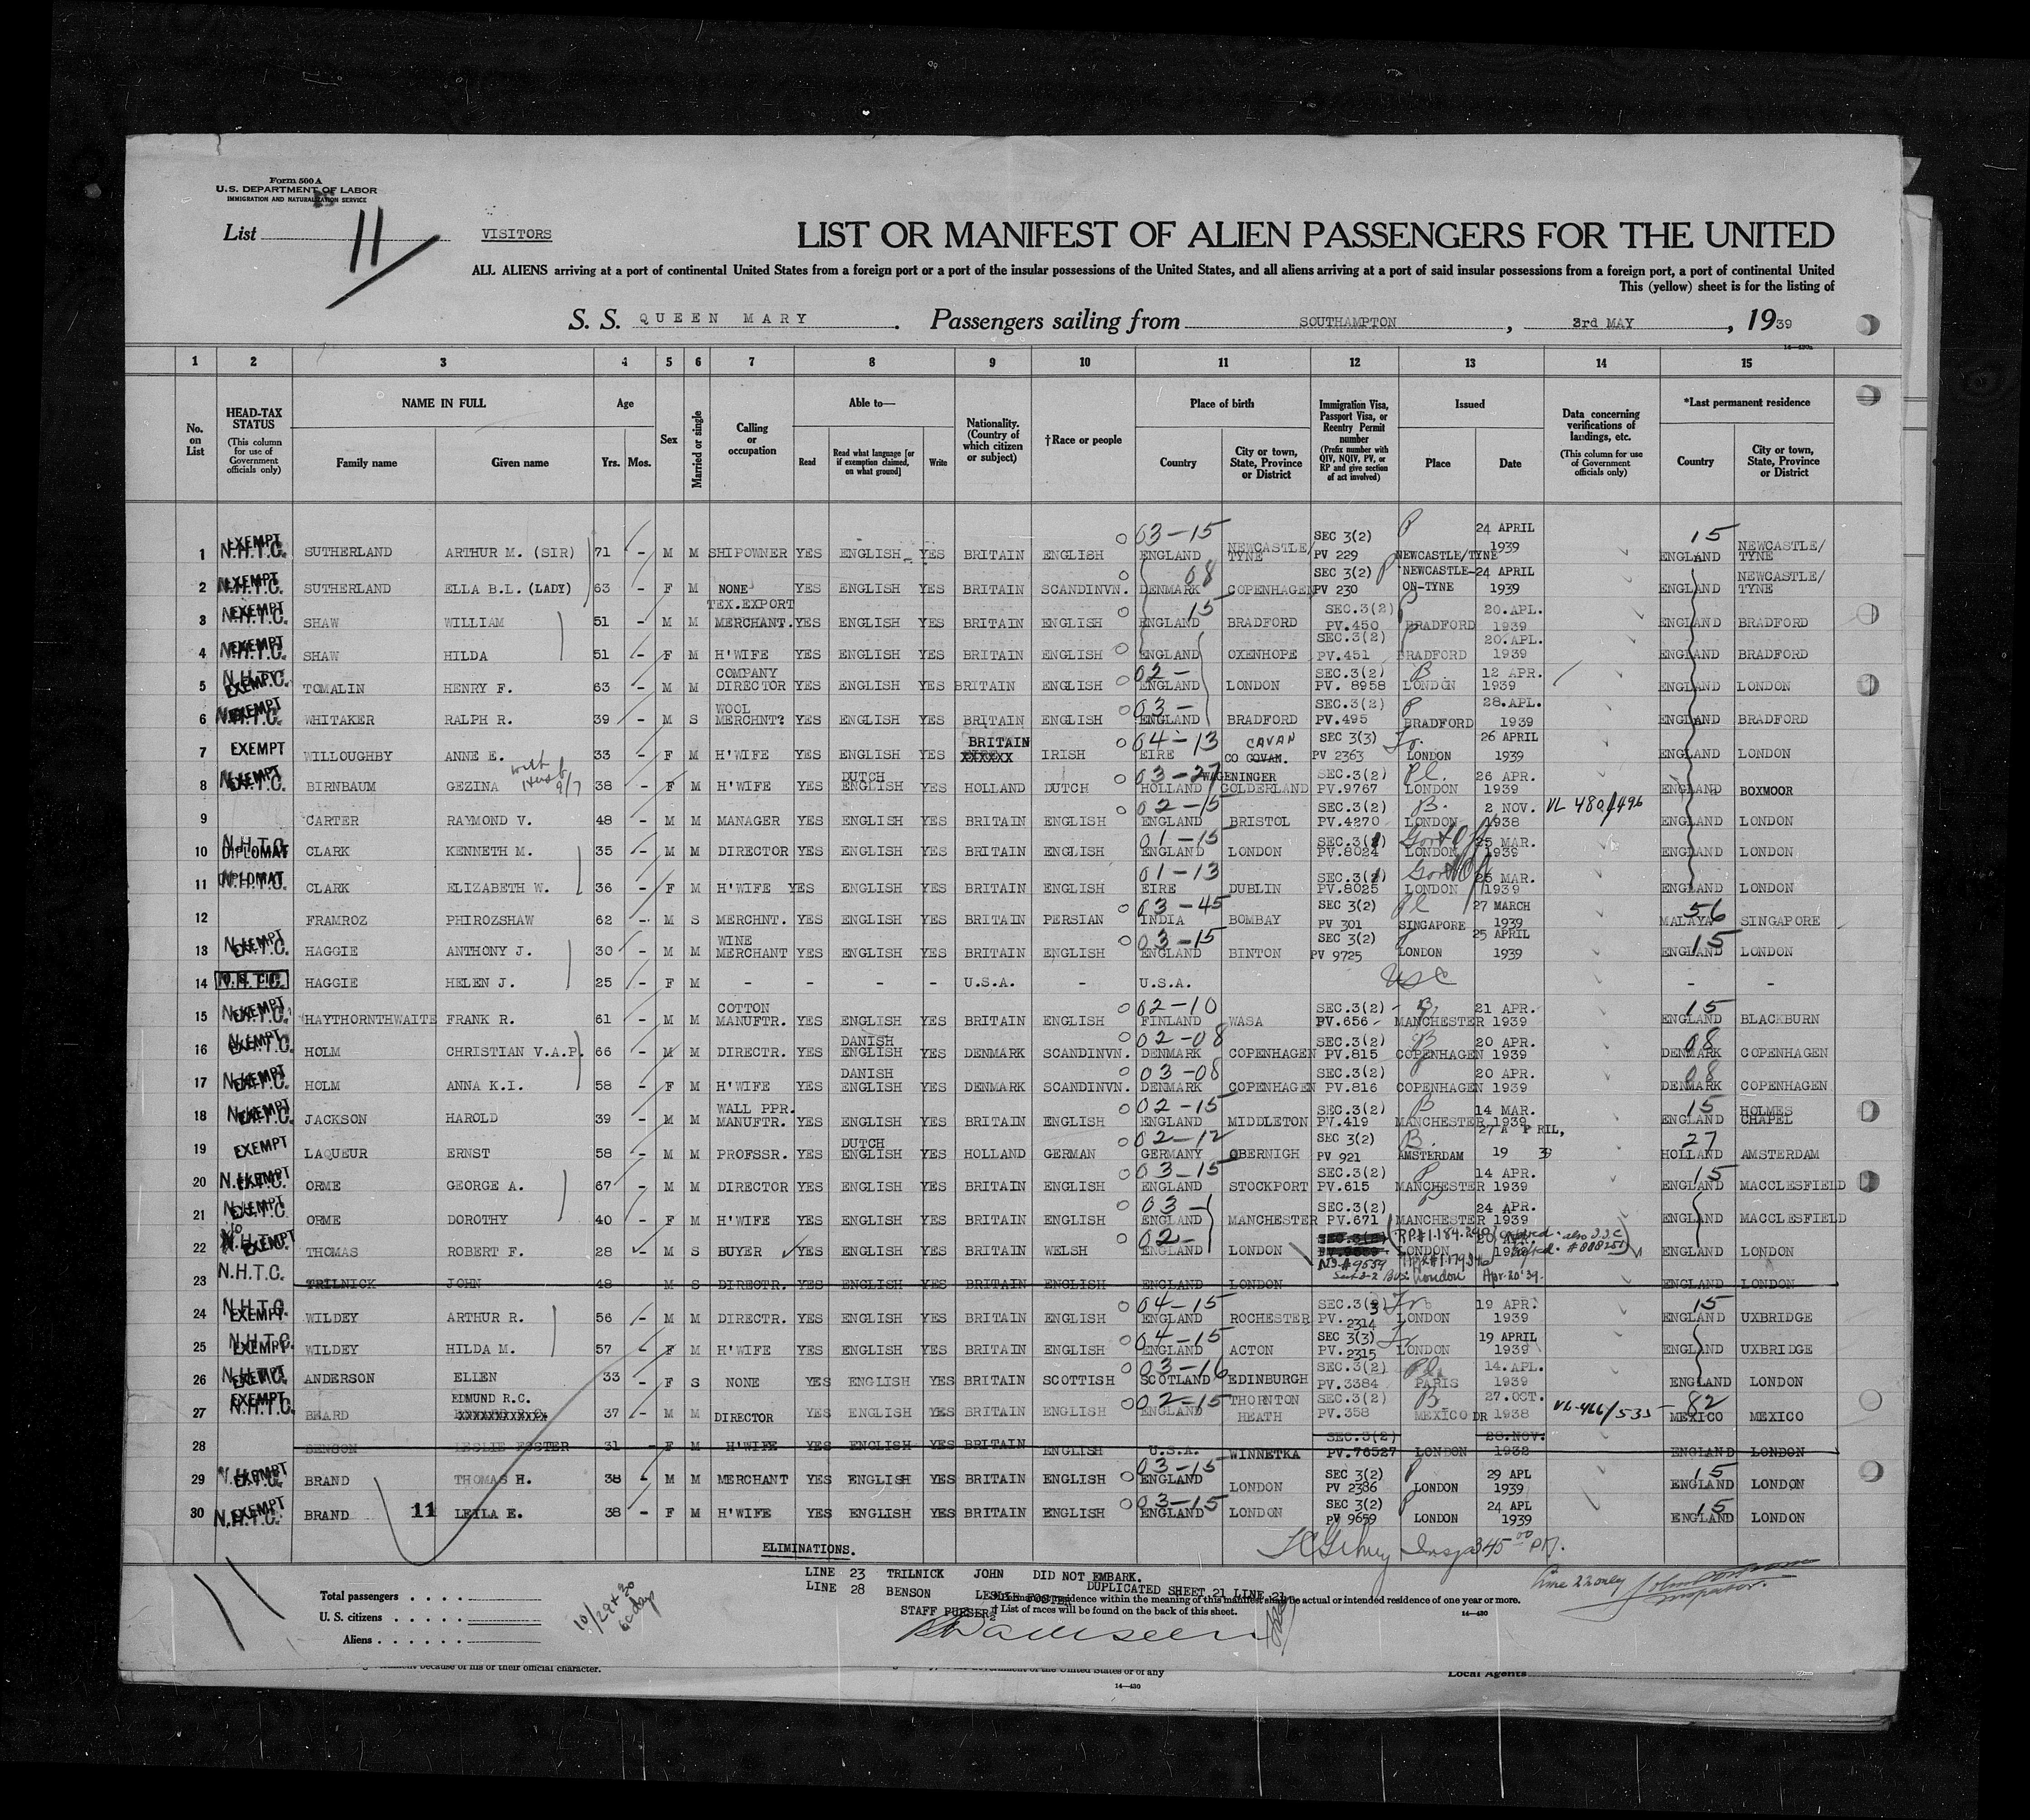 Form 500 A
U.S. DEPARTMENT OF LABOR
IMMIGRATION AND NATURALIZATION SERVICE
List 11 VISITORS
LIST OR MANIFEST OF ALIEN PASSENGERS FOR THE UNITED
ALL ALIENS arriving at a port of continental United States from a foreign port or a port of the insular possessions of the United States, and all aliens arriving at a port of said insular possessions from a foreign port, a port of continental United
This (yellow) sheet is for the listing of
S. S. QUEEN MARY. Passengers sailing from SOUTHAMPTON, 3rd MAY, 1939
14—430a
1 2 3 4 5 6 7 8 9 10 11 12 13 14 15
No. on List
HEAD-TAX STATUS (This column for use of Government officials only)
NAME IN FULL Family name Given name
Age Yrs. Mos.
Sex
Married or single
Calling or occupation
Able to— Read Read what language [or if exemption claimed, on what ground] Write
Nationality. (Country of which citizen or subject)
†Race or people
Place of birth Country City or town, State, Province or District
Immigration Visa, Passport Visa, or Reentry Permit number (Prefix number with QIV, NQIV, PV, or RP and give section of act involved)
Issued Place Date
Data concerning verifications of landings, etc. (This column for use of Government officials only)
*Last permanent residence Country City or town, State, Province or District
1 N.H.T.C. EXEMPT SUTHERLAND ARTHUR M. (SIR) 71 - M M SHIPOWNER YES ENGLISH YES BRITAIN ENGLISH 03-15 ENGLAND NEWCASTLE/TYNE SEC 3(2) PV 229 P NEWCASTLE/TYNE 24 APRIL 1939 15 ENGLAND NEWCASTLE/TYNE
2 N.H.T.C. EXEMPT SUTHERLAND ELLA B.L. (LADY) 63 - F M NONE YES ENGLISH YES BRITAIN SCANDINVN. 08 DENMARK COPENHAGEN SEC 3(2) PV 230 P NEWCASTLE-ON-TYNE 24 APRIL 1939 ENGLAND NEWCASTLE/TYNE
3 N.H.T.C. EXEMPT SHAW WILLIAM 51 - M M TEX.EXPORT MERCHANT. YES ENGLISH YES BRITAIN ENGLISH 15 ENGLAND BRADFORD SEC.3(2) PV.450 P BRADFORD 20.APL. 1939 ENGLAND BRADFORD
4 N.H.T.C. EXEMPT SHAW HILDA 51 - F M H'WIFE YES ENGLISH YES BRITAIN ENGLISH ENGLAND OXENHOPE SEC.3(2) PV.451 P BRADFORD 20.APL. 1939 ENGLAND BRADFORD
5 N.H.T.C. EXEMPT TOMALIN HENRY F. 63 - M M COMPANY DIRECTOR YES ENGLISH YES BRITAIN ENGLISH 02- ENGLAND LONDON SEC.3(2) PV. 8958 B LONDON 12 APR. 1939 ENGLAND LONDON
6 N.H.T.C. EXEMPT WHITAKER RALPH R. 39 - M S WOOL MERCHNT? YES ENGLISH YES BRITAIN ENGLISH 03- ENGLAND BRADFORD SEC.3(2) PV.495 P BRADFORD 28.APL. 1939 ENGLAND BRADFORD
7 EXEMPT WILLOUGHBY ANNE E. 33 - F M H'WIFE YES ENGLISH YES BRITAIN XXXXXX IRISH 04-13 EIRE CAVAN CO COVAN. SEC 3(3) PV 2363 Tr. LONDON 26 APRIL 1939 ENGLAND LONDON
8 N.H.T.C. EXEMPT BIRNBAUM GEZINA with Husb 9/7 38 - F M H'WIFE YES DUTCH ENGLISH YES HOLLAND DUTCH 03-27 HOLLAND WAGENINGER GOLDERLAND SEC.3(2) PV.9767 Pl. LONDON 26 APR. 1939 ENGLAND BOXMOOR
9 CARTER RAYMOND V. 48 - M M MANAGER YES ENGLISH YES BRITAIN ENGLISH 02-15 ENGLAND BRISTOL SEC.3(2) PV.4270 B. LONDON 2 NOV. 1938 VL 480/496 ENGLAND LONDON
10 N.H.T.C. DIPLOMAT CLARK KENNETH M. 35 - M M DIRECTOR YES ENGLISH YES BRITAIN ENGLISH 01-15 ENGLAND LONDON SEC.3(1) PV.8024 Govt Off LONDON 25 MAR. 1939 ENGLAND LONDON
11 N.H.T.C. DIPLOMAT CLARK ELIZABETH W. 36 - F M H'WIFE YES ENGLISH YES BRITAIN ENGLISH 01-13 EIRE DUBLIN SEC.3(1) PV.8025 Govt Off LONDON 25 MAR. 1939 ENGLAND LONDON
12 FRAMROZ PHIROZSHAW 62 - M S MERCHNT. YES ENGLISH YES BRITAIN PERSIAN 03-45 INDIA BOMBAY SEC 3(2) PV 301 Pl SINGAPORE 27 MARCH 1939 56 MALAYA SINGAPORE
13 N.H.T.C. EXEMPT HAGGIE ANTHONY J. 30 - M M WINE MERCHANT YES ENGLISH YES BRITAIN ENGLISH 03-15 ENGLAND BINTON SEC 3(2) PV 9725 P LONDON 25 APRIL 1939 15 ENGLAND LONDON
14 HAGGIE HELEN J. 25 - F M - - - - U.S.A. - U.S.A. USC - -
15 N.H.T.C. EXEMPT HAYTHORNTHWAITE FRANK R. 61 - M M COTTON MANUFTR. YES ENGLISH YES BRITAIN ENGLISH 02-10 FINLAND WASA SEC.3(2) PV.656 B. MANCHESTER 21 APR. 1939 15 ENGLAND BLACKBURN
16 N.H.T.C. EXEMPT HOLM CHRISTIAN V.A.P. 66 - M M DIRECTR. YES DANISH ENGLISH YES DENMARK SCANDINVN. 02-08 DENMARK COPENHAGEN SEC.3(2) PV.815 B COPENHAGEN 20 APR. 1939 08 DENMARK COPENHAGEN
17 N.H.T.C. EXEMPT HOLM ANNA K.I. 58 - F M H'WIFE YES DANISH ENGLISH YES DENMARK SCANDINVN. 03-08 DENMARK COPENHAGEN SEC.3(2) PV.816 P COPENHAGEN 20 APR. 1939 08 DENMARK COPENHAGEN
18 N.H.T.C. EXEMPT JACKSON HAROLD 39 - M M WALL PPR. MANUFTR. YES ENGLISH YES BRITAIN ENGLISH 02-15 ENGLAND MIDDLETON SEC.3(2) PV.419 B MANCHESTER 14 MAR. 1939 15 ENGLAND HOLMES CHAPEL
19 EXEMPT LAQUEUR ERNST 58 - M M PROFSSR. YES DUTCH ENGLISH YES HOLLAND GERMAN 02-12 GERMANY OBERNIGH SEC 3(2) PV 921 B. AMSTERDAM 27 A PRIL, 1939 27 HOLLAND AMSTERDAM
20 N.H.T.C. EXEMPT ORME GEORGE A. 67 - M M DIRECTOR YES ENGLISH YES BRITAIN ENGLISH 03-15 ENGLAND STOCKPORT SEC.3(2) PV.615 P MANCHESTER 14 APR. 1939 15 ENGLAND MACCLESFIELD
21 N.H.T.C. EXEMPT ORME DOROTHY 40 - F M H'WIFE YES ENGLISH YES BRITAIN ENGLISH 03- ENGLAND MANCHESTER SEC.3(2) PV.671 P MANCHESTER 24 APR. 1939 ENGLAND MACCLESFIELD
22 N.H.T.C. EXEMPT THOMAS ROBERT F. 28 - M S BUYER YES ENGLISH YES BRITAIN WELSH 02- ENGLAND LONDON SEC.3(2) LONDON 20 APR. 1939 #9559 London Apr. 20 '39 ENGLAND LONDON
23 N.H.T.C. TRILNICK JOHN 48 - M S DIRECTR. YES ENGLISH YES BRITAIN ENGLISH ENGLAND LONDON ENGLAND LONDON
24 N.H.T.C. EXEMPT WILDEY ARTHUR R. 56 - M M DIRECTR. YES ENGLISH YES BRITAIN ENGLISH 04-15 ENGLAND ROCHESTER SEC.3(3) PV. 2314 Tr. LONDON 19 APR. 1939 15 ENGLAND UXBRIDGE
25 N.H.T.C. EXEMPT WILDEY HILDA M. 57 - F M H'WIFE YES ENGLISH YES BRITAIN ENGLISH 04-15 ENGLAND ACTON SEC 3(3) PV. 2315 Tr LONDON 19 APRIL 1939 ENGLAND UXBRIDGE
26 N.H.T.C. EXEMPT ANDERSON ELLEN 33 - F S NONE YES ENGLISH YES BRITAIN SCOTTISH 03-16 SCOTLAND EDINBURGH SEC.3(2) PV.3384 Pl. PARIS 14.APL. 1939 ENGLAND LONDON
27 EXEMPT N.H.T.C. BEARD EDMUND R.C. XXXXXXXXXXXX 37 - M M DIRECTOR YES ENGLISH YES BRITAIN ENGLISH 02-15 ENGLAND THORNTON HEATH SEC.3(2) PV.358 B MEXICO DR 27.OCT. 1938 VL-466/535 82 MEXICO MEXICO
28 BENSON LESLIE FOSTER 31 - F M H'WIFE YES ENGLISH YES BRITAIN ENGLISH U.S.A. WINNETKA SEC.3(2) PV.76527 LONDON 28.NOV. 1938 ENGLAND LONDON
29 N.H.T.C. EXEMPT BRAND THOMAS H. 38 - M M MERCHANT YES ENGLISH YES BRITAIN ENGLISH 03-15 ENGLAND LONDON SEC 3(2) PV 2386 P LONDON 29 APL 1939 15 ENGLAND LONDON
30 N.H.T.C. EXEMPT BRAND 11 LEILA E. 38 - F M H'WIFE YES ENGLISH YES BRITAIN ENGLISH 03-15 ENGLAND LONDON SEC 3(2) PV 9659 P LONDON 24 APL 1939 15 ENGLAND LONDON
ELIMINATIONS.
LINE 23 TRILNICK JOHN DID NOT EMBARK.
LINE 28 BENSON LESLIE FOSTER DUPLICATED SHEET 21 LINE 21
Total passengers
U. S. citizens
Aliens
10/29+30 60 days
Line 22 only
Inspector.
permanent residence within the meaning of this manifest shall be actual or intended residence of one year or more.
† List of races will be found on the back of this sheet.
14—430
STAFF PURSER
because of his or their official character.
Government of the United States or of any
Local Agents
14—430